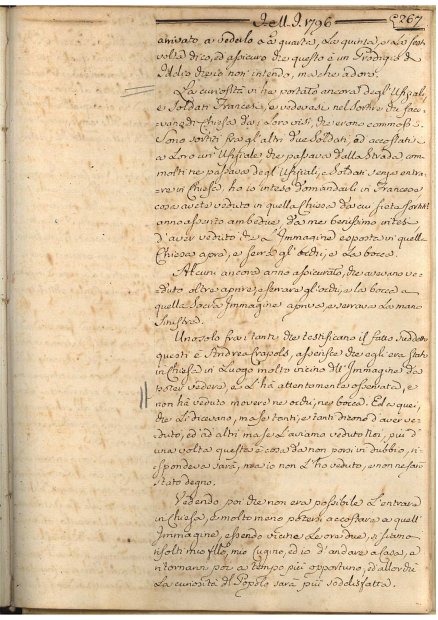 D.M.J. 1796 267
arrivato, a vederlo La quarta, La quinta, e La sest
volta dico, ed assicuro che questo è un Prodigio di
Iddio che io non intendo, ma che adoro.
La curiosità vi ha portato ancora degl' Uffiziali,
e Soldati Francesi, e vedevasi nel sortire che face-
vano di Chiesa da i Loro visi, che erano commossi.
Sono sortiti fra gl' altri due Soldati, ed accostati
a Loro un' Uffiziale che passava dalla Strada, com
molti ne passava degl' Uffiziali, e Soldati senza entra-
re in Chiesa, ho io inteso domandarli in Francese
cosa avete veduto in quella Chiesa da cui siete sortiti
anno asserito ambedue, da me benissimo intesi
d'aver veduto che L' Immagine esposta in quella
Chiesa apra, e serra gl' occhi, e La bocca.
Alcuni ancora anno assicurato, che avevano ve-
duto oltre aprire, e serrare gl' occhi, e la bocca a
quella Sacra Immagine apriva, e serrava La mano
sinistra.
Uno solo fra i tanti che testificano il fatto suddetto
questi è Andrea Crapols, asserisce che egli era stato
in Chiesa in Luogo molto vicino all' Immagine da
poter vedere, e L' ha attentamente osservata, e
non ha veduto movere ne occhi, ne bocca. Ed a quei,
che Li dicevano, ma se tanti, e tanti dicono d'aver ve-
duto, ed ad altri ma se L' aviamo veduto Noi, più d'
una volta questa è cosa da non porsi in dubbio, ri-
spondeva sarà, ma io non L' ho veduto, e non ne sarò
stato degno.
Vedendo poi che non era possibile L' entrare
in Chiesa, e molto meno potersi accostare a quell'
Immagine, essendo vicine Le ore due, si siamo
risolti mio fllo, mio Cugino, ed io d' andare a Casa, e
ritornare poi a tempo più opportuno, ed allorchè
La curiosità del Popolo sarà più soddisfatta.